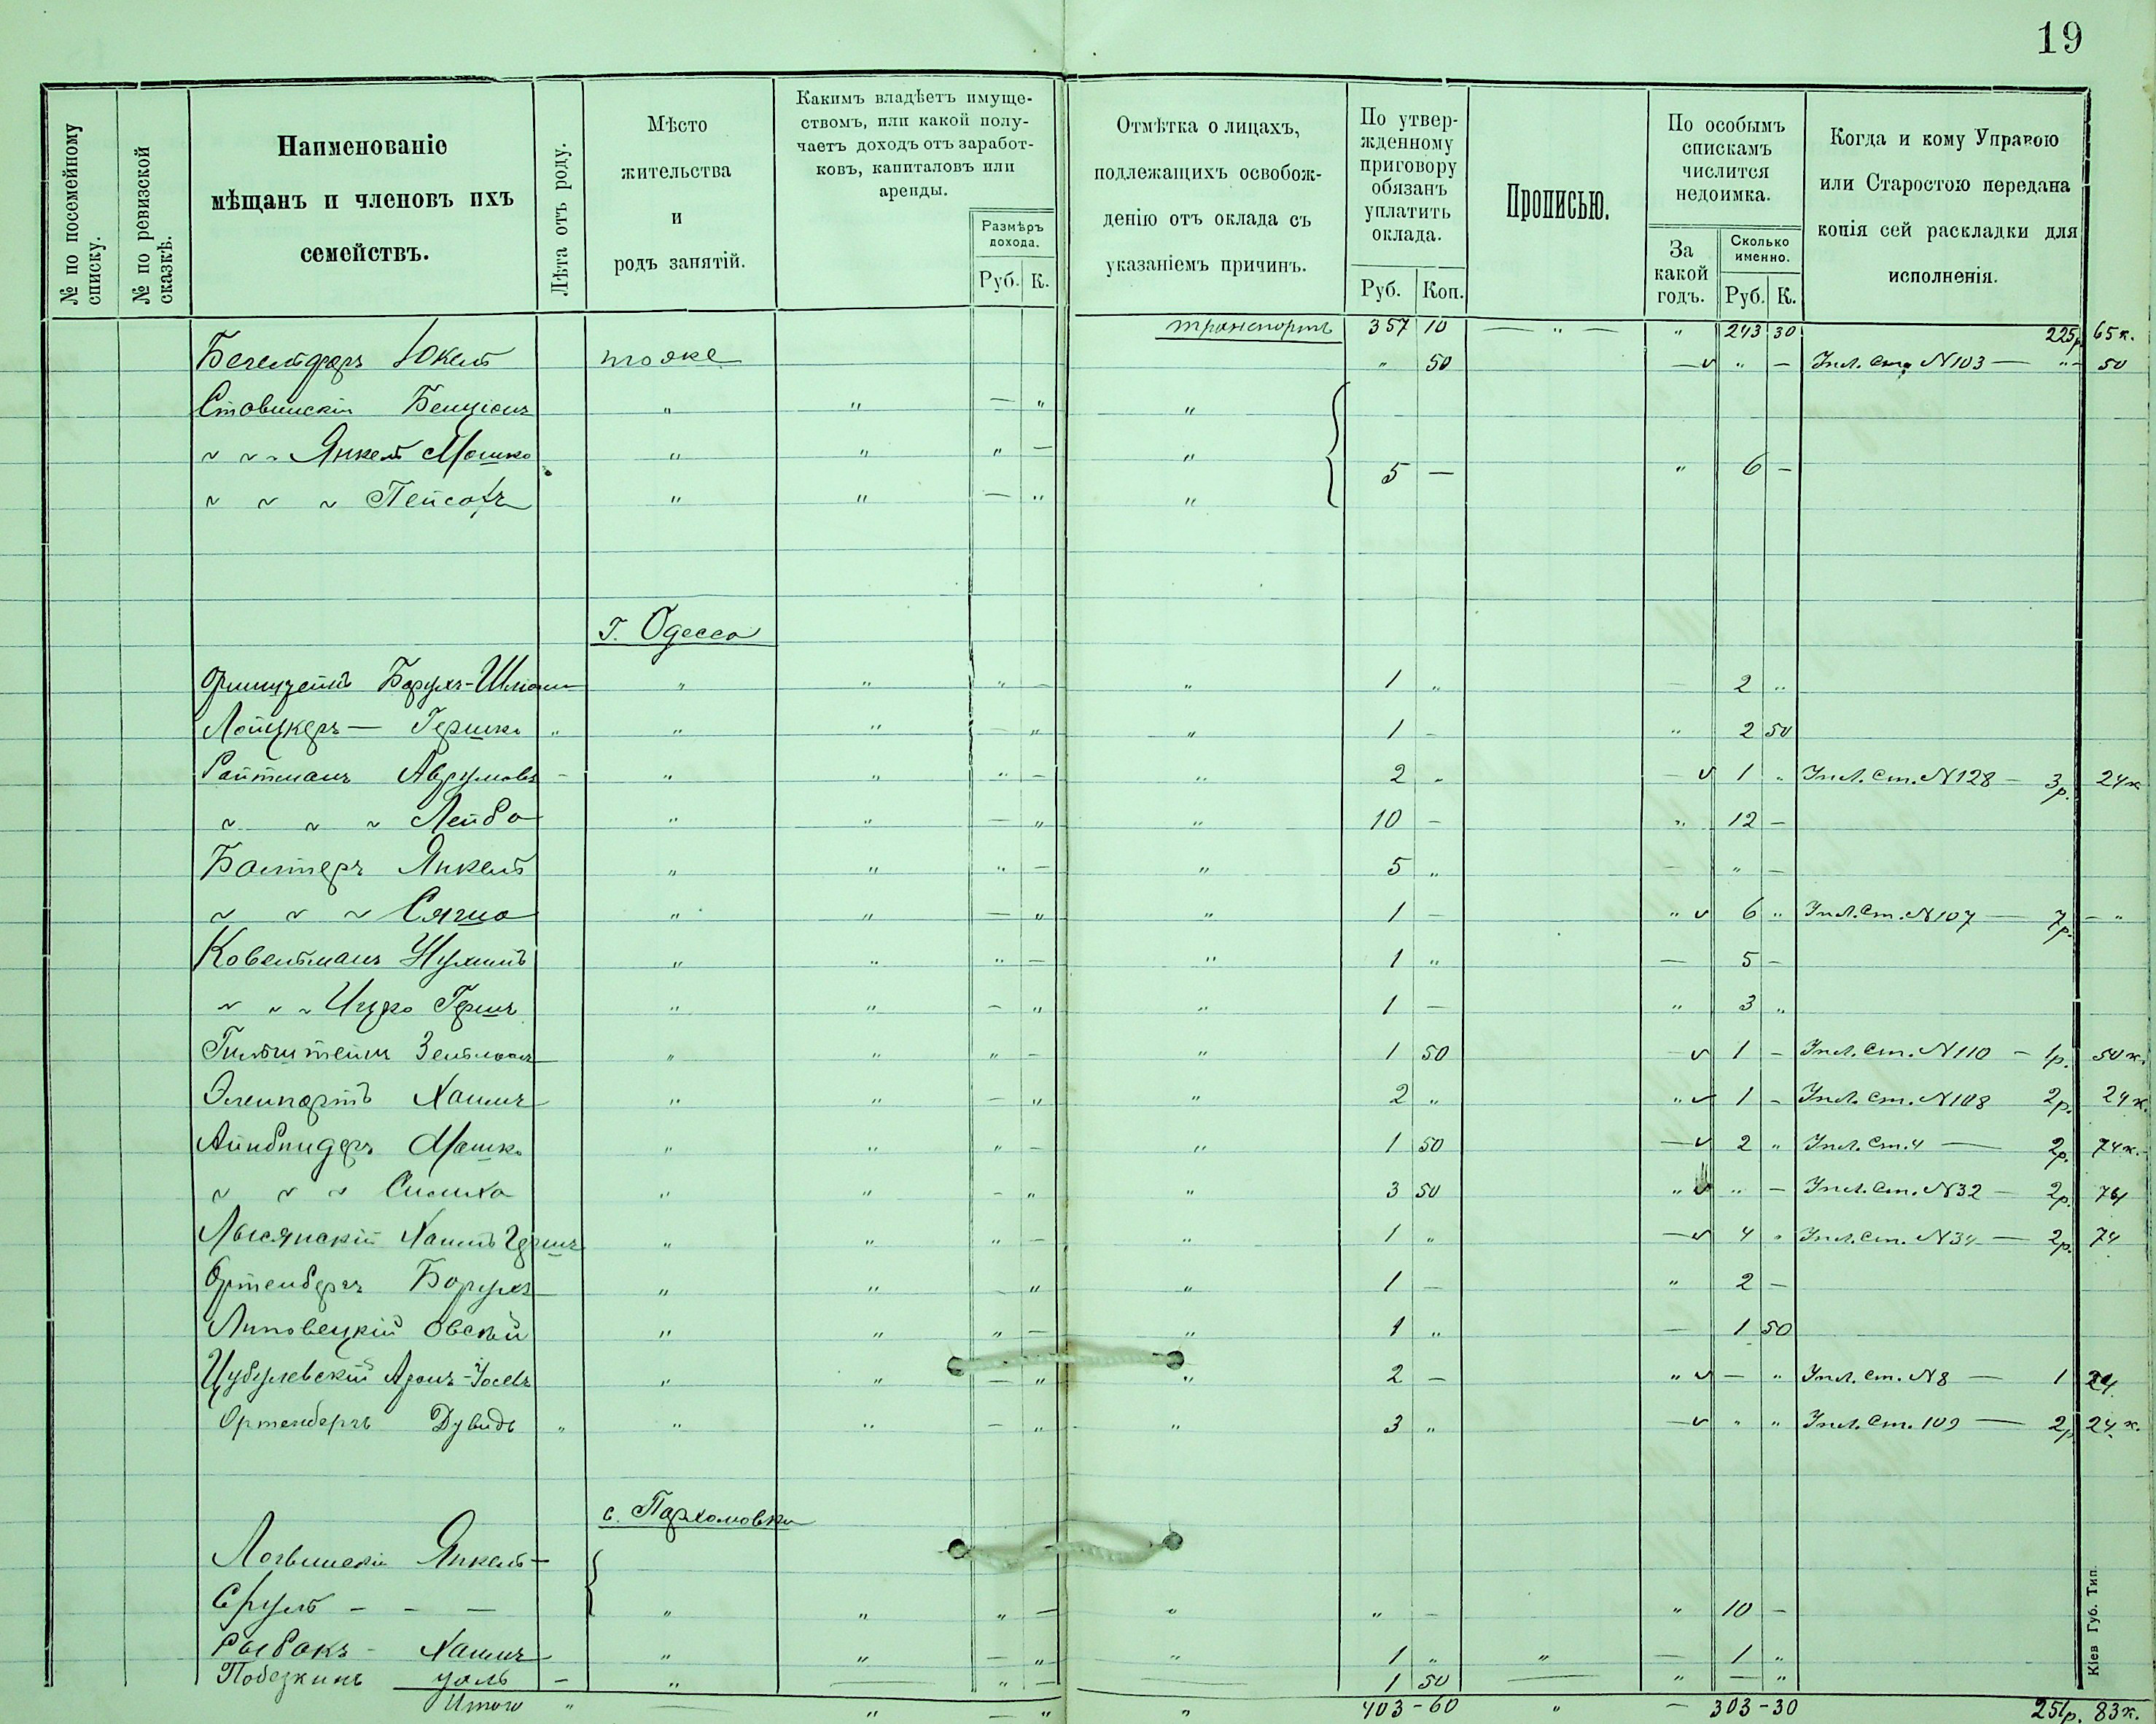 19
№ по посемейному списку.
№ по ревизской сказкѣ.
Наименованіе мѣщанъ и членовъ ихъ семействъ.
Лѣта отъ роду.
Мѣсто жительства и родъ занятій.
Какимъ владѣетъ имуществомъ, или какой получаетъ доходъ отъ заработковъ, капиталовъ или аренды.
Размѣръ дохода.
Руб. К.
Отмѣтка о лицахъ, подлежащихъ освобожденію отъ оклада съ указаніемъ причинъ.
По утвержденному приговору обязанъ уплатить оклада.
Руб. Коп.
Прописью.
По особымъ спискамъ числится недоимка.
За какой годъ.
Сколько именно.
Руб. К.
Когда и кому Управою или Старостою передана копія сей раскладки для исполненія.
транспортъ 357 10 — " — " 243 30 225р 65к.
Юкель тоже " 50 — v " — N103 — "- 50
Ставинскій Бенціонъ " " — " "
~ ~ ~ Янкель Мошко " " " — " 5 — " 6 —
~ ~ ~ Пейсахъ " " — " "
г. Одесса
Борухъ-Шліома " " " — " 1 " — 2 "
Лойцкеръ — Гершко " " " — " " 1 – " 2 50
Ройтманъ Аврумовъ – " " " — " 2 " — v 1 " Упл. Ст. N128 — 3р. 24к
~ ~ ~ Лейба " " — " " 10 – " 12 –
Янкель " " " — " 5 " — " —
~ ~ ~ " " — " " 1 – " v 6 " Упл. Ст. N107 — 7р. – "
Ковельманъ Нухимъ " " " — " 1 " — 5 –
~ ~ ~ Ицко Гершъ " " — " " 1 — " 3 "
Гильштейнъ Зельманъ " " " – " 1 50 v 1 – Упл. Ст. N110 – 1р. 50к.
Хаимъ " " – " " 2 " " v 1 – Упл. Ст. N108 2р. 24к.
Айнбиндеръ Мошко " " " – " 1 50 — v 2 " Упл. Ст. 4 — 2р. 74к.
~ ~ ~ Симха " " – " " 3 50 " v " – Упл. Ст. N32 — 2р. 74
Лысянскій Хаимъ Гершъ " " " – " 1 " — v 4 " Упл. Ст. N34 — 2р. 74
Ортенбергъ Борухъ " " – " " 1 — " 2 —
Липовецкій Овсей " " " — " 1 " — 1 50
Цубулевскій Аронъ-Іосевъ " " — " " 2 — " v — " Упл. Ст. N8 — 1 24
Ортенбергъ Дувидъ " " " — " " 3 " — v " " Упл. Ст. 109 — 2р. 24к.
с. Пархомовка
Логвинскій Янкель —
Сруль – – — " " " — " " – " 10 –
Рыбакъ – Хаимъ " " — " " 1 " " — 1 "
Побезкинъ – " — " — — 1 50 — " — "
Итого " — " — " " 403-60 " — 303-30 251р. 83к.
Кіев Губ. Тип.